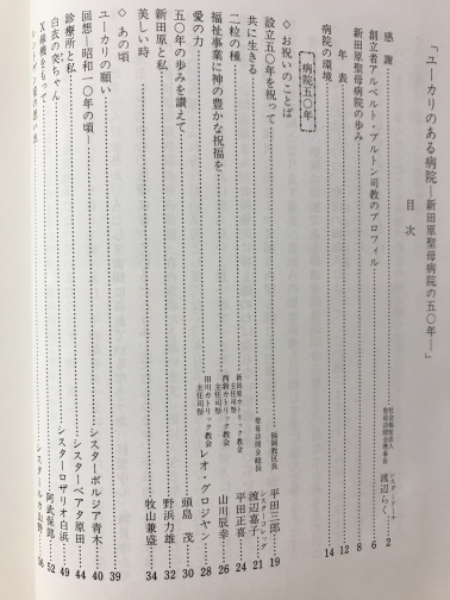 「ユーカリのある病院―新田原聖母病院の五〇年―」
目次
感謝 社会福祉法人 聖母訪問会理事長 シスターレーナ 渡辺らく 2
創立者アルベルト・ブルトン司教のプロフィル 6
新田原聖母病院の歩み 8
年表 12
病院の環境 14
病院五〇年
◇お祝いのことば
設立五〇年を祝って 福岡教区長 平田三郎 19
共に生きる 聖母訪問会総長 渡辺嘉子 21
二粒の種 新田原カトリック教会 主任司祭 平田正喜 24
福祉事業に神の豊かな祝福を 西新カトリック教会 主任司祭 山川辰幸 26
愛の力 田川カトリック教会 主任司祭 レオ・グロジャン 28
五〇年の歩みを讃えて 頭島茂 30
新田原と私 野浜力雄 32
美しい時 牧山兼盛 34
◇あの頃
ユーカリの願い 39
回想―昭和一〇年の頃― シスターボルジア青木 40
診療所と私 シスターベアタ原田 44
白衣の突ちゃん シスターロザリオ白浜 49
X線機をもって 阿武保郎 52
56